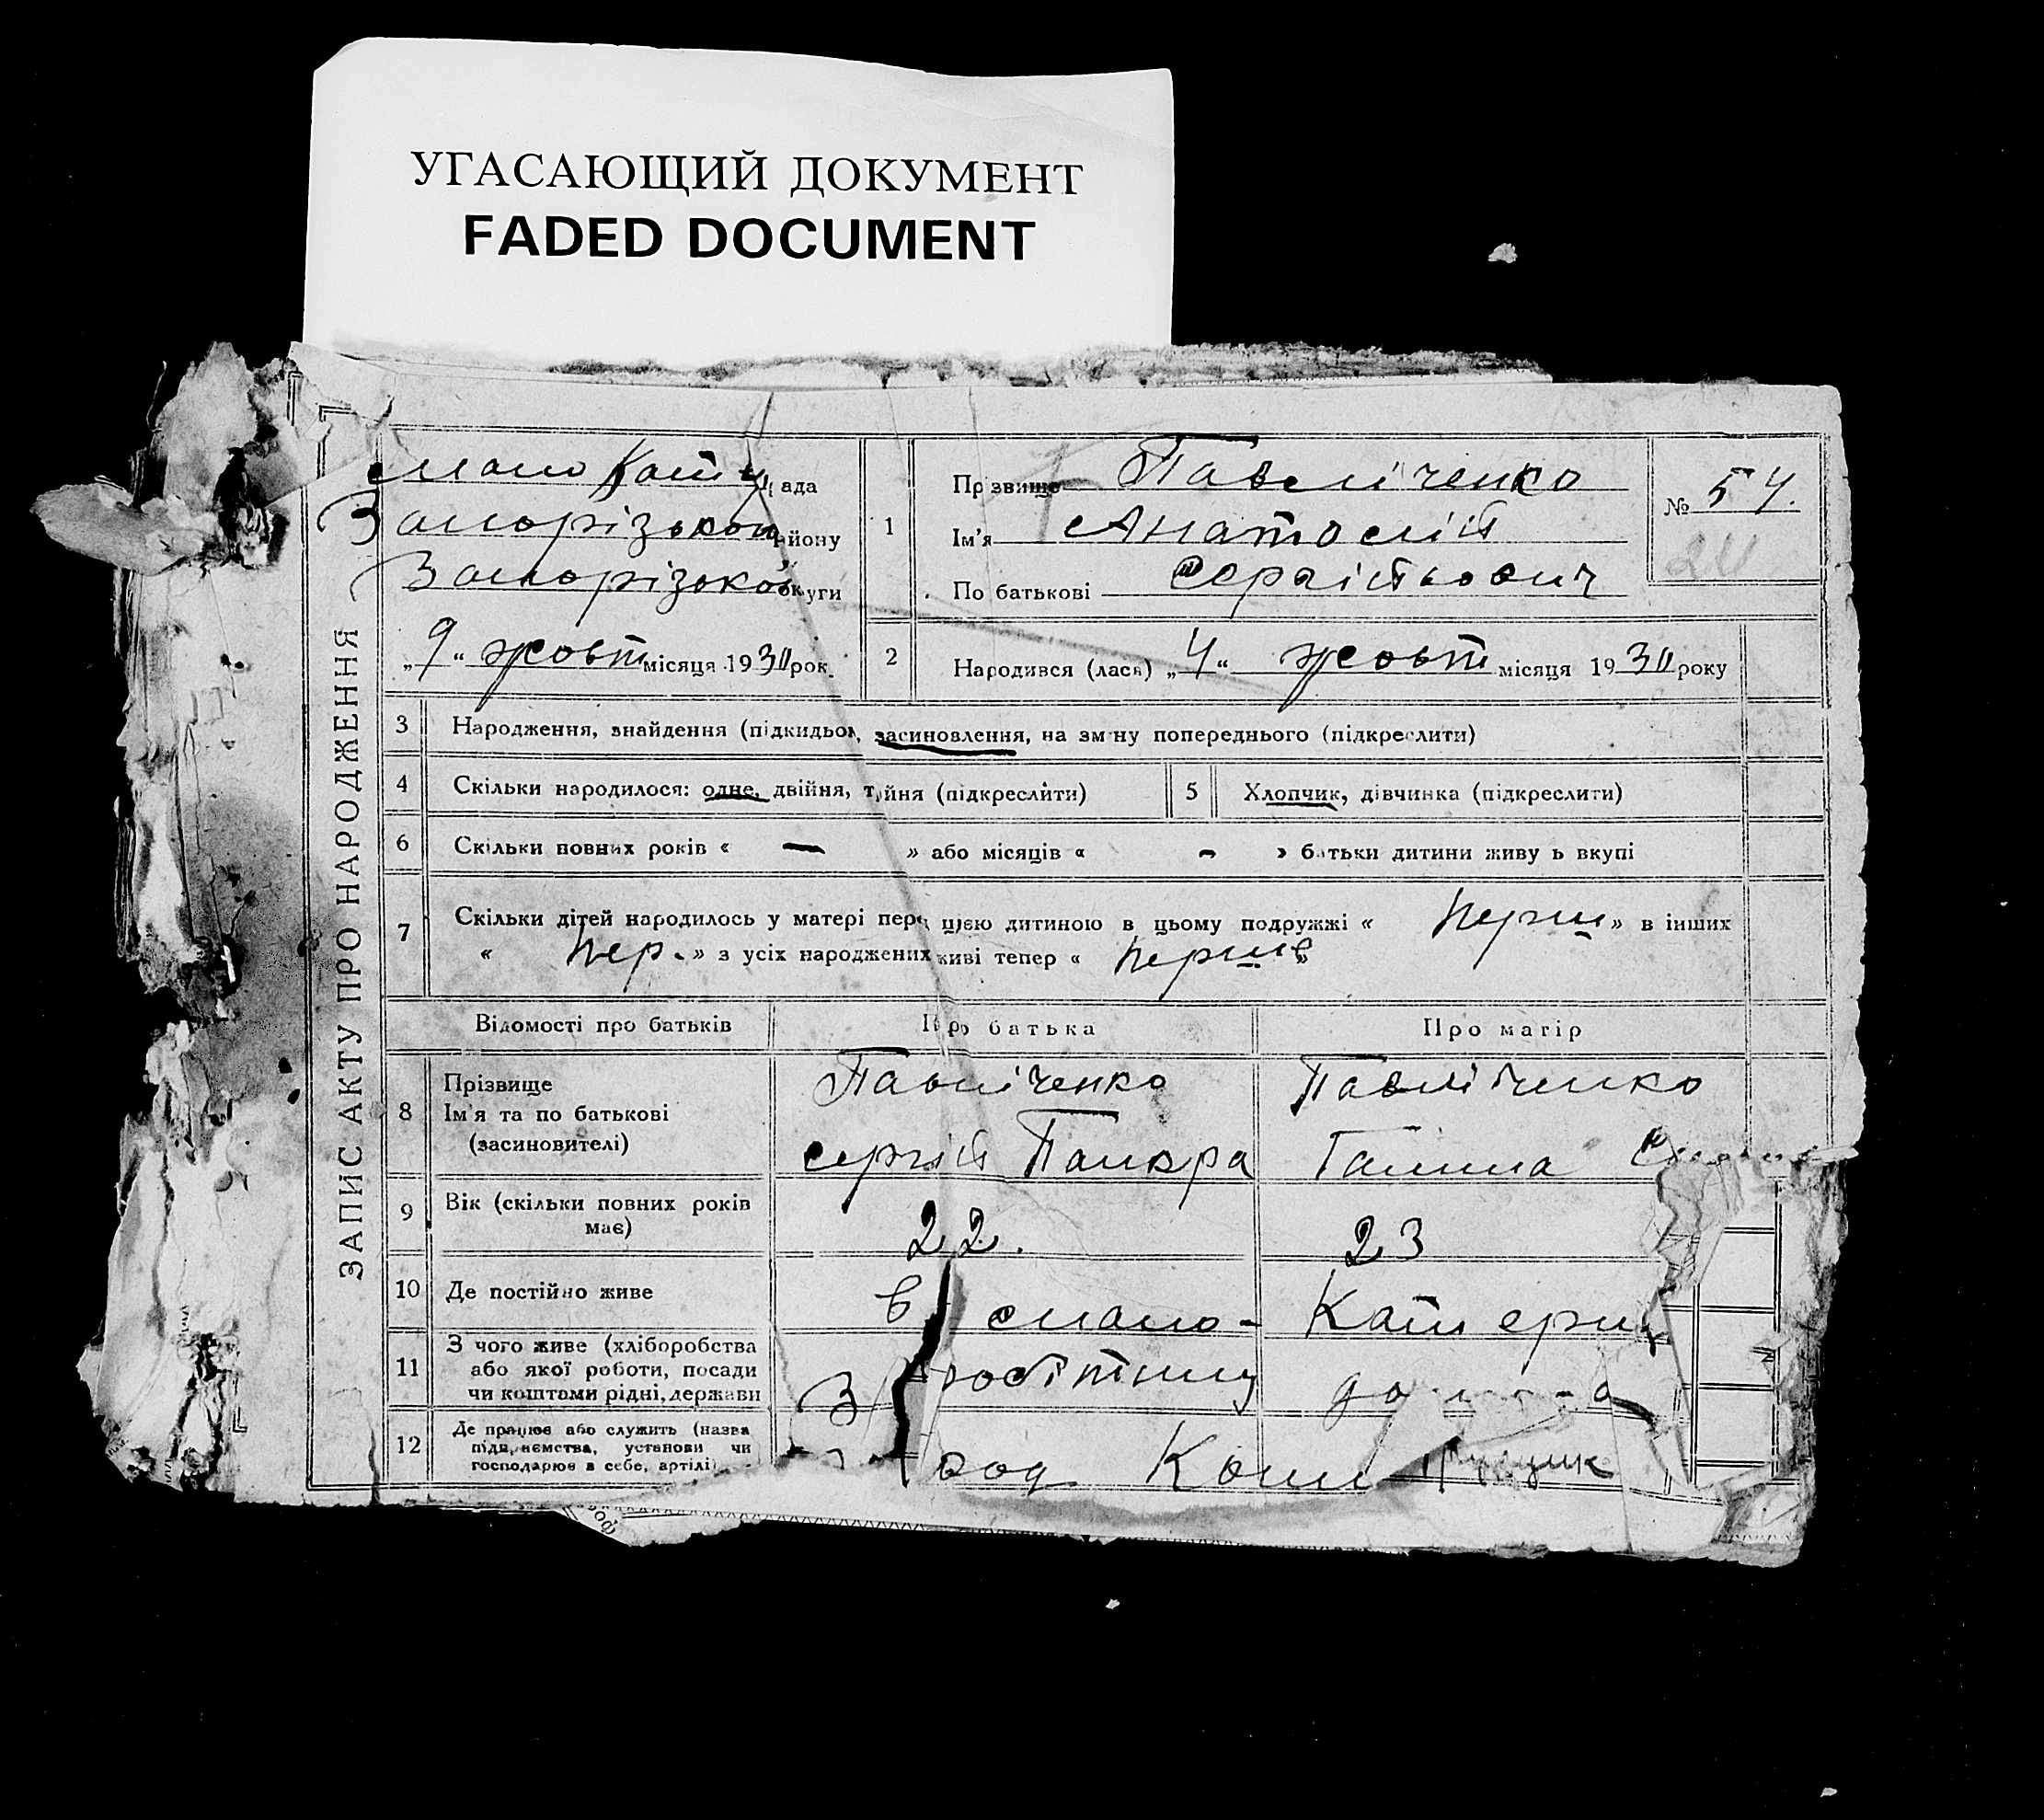 УГАСАЮЩИЙ ДОКУМЕНТ
FADED DOCUMENT
ЗАПИС АКТУ ПРО НАРОДЖЕННЯ
Мало Кати ада
Запорізької йону
Запорізької уги
„9“ жовт місяця 1930 рок
1
Прізвище Павліченко
Ім'я Анатолій
По батькові Сергійович
№ 54.
2
Народився (лася) „4“ жовт місяця 1930 року
3 Народження, знайдення (підкидьок, засиновлення, на зміну попереднього (підкреслити)
4 Скільки народилося: одне, двійня, трійня (підкреслити)
5 Хлопчик, дівчинка (підкреслити)
6 Скільки повних років « — » або місяців « - » батьки дитини живу ь вкупі
7 Скільки дітей народилось у матері перед цією дитиною в цьому подружжі « перш » в інших
« пер. » з усіх народжених живі тепер « перше »
Відомості про батьків Про батька Про матір
8 Прізвище Павліченко Павліченко
Ім'я та по батькові
(засиновителі) Сергій Панкра Галина
9 Вік (скільки повних років має) 22. 23
10 Де постійно живе в Мало- Катерин
11 З чого живе (хліборобства
або якої роботи, посади
чи коштами рідні, держави З робітниц
12 Де працює або служить (назва
підприємства, установи чи
господарює в себе, артілі) вод Ком